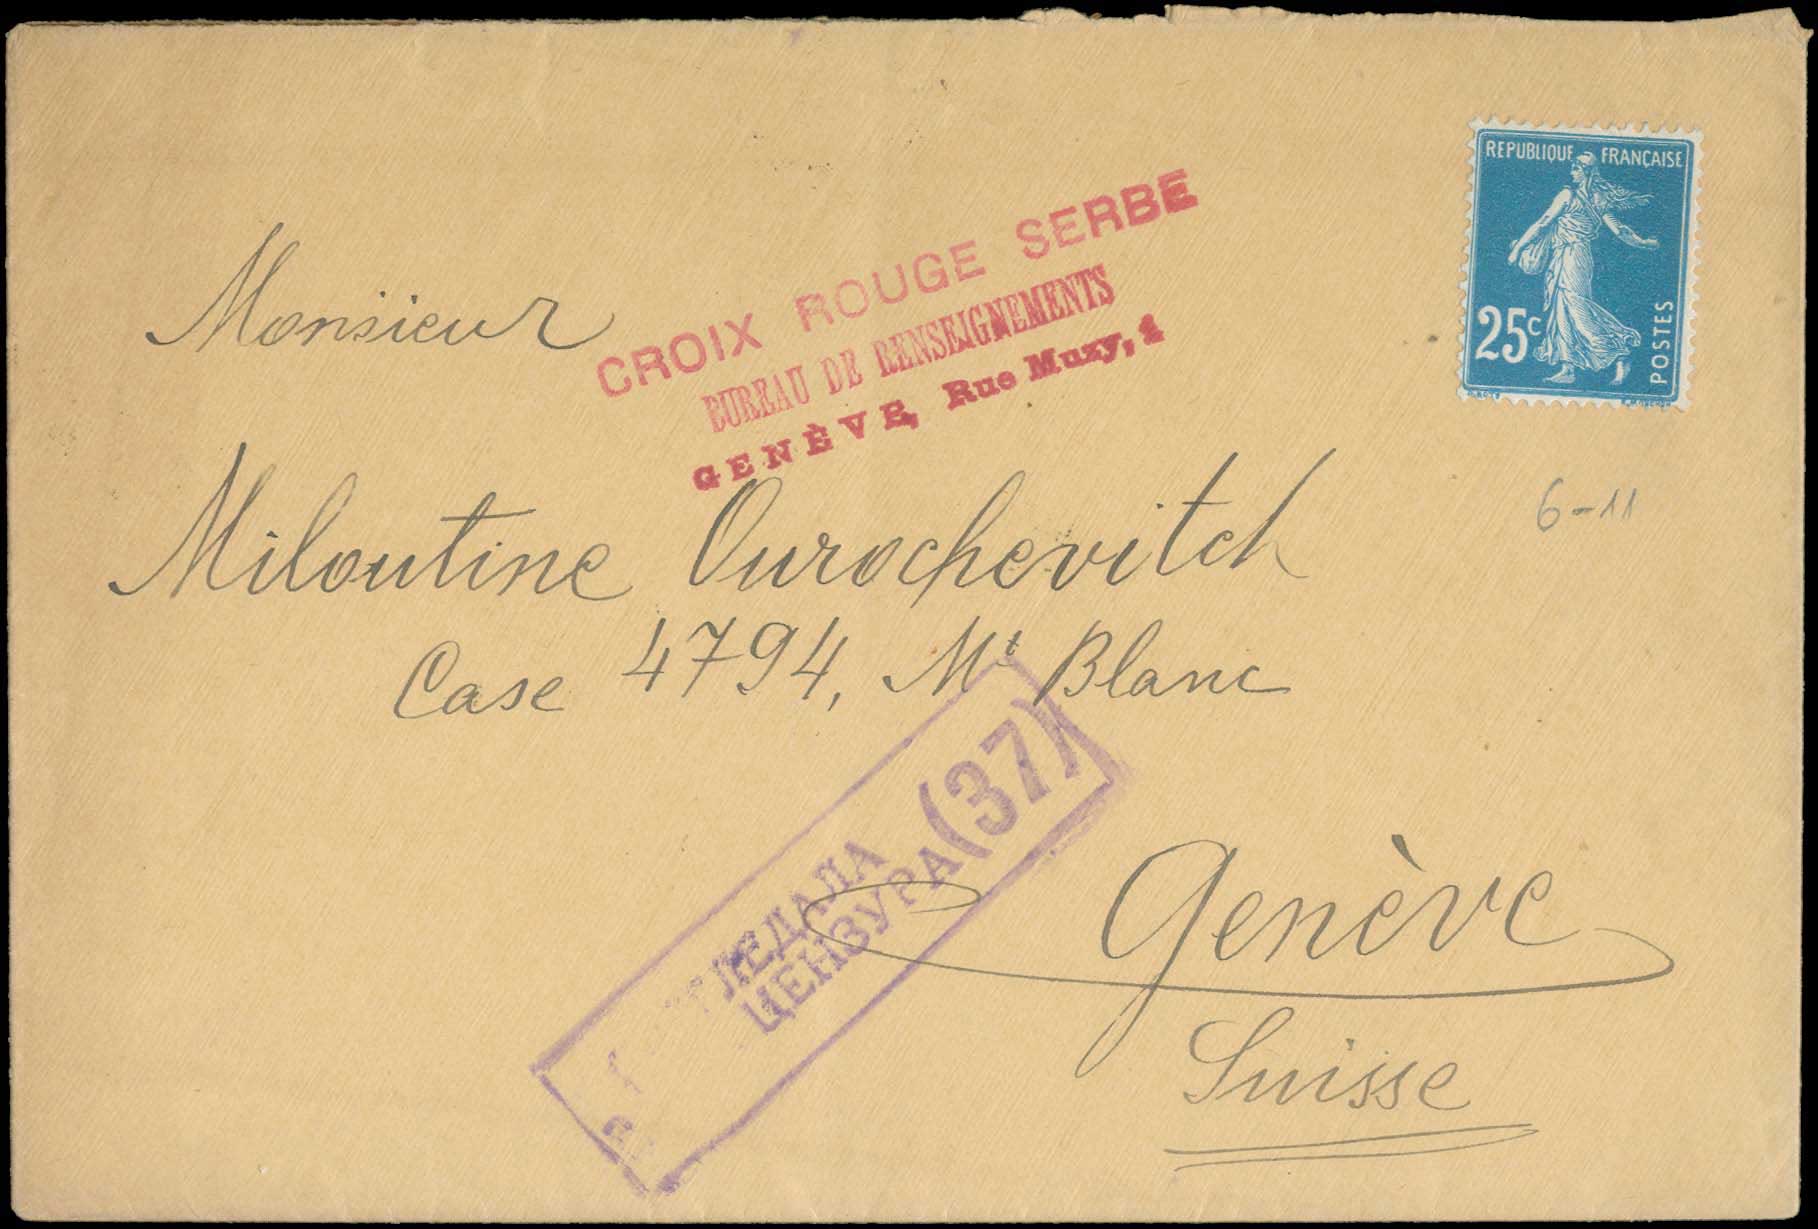 REPUBLIQUE FRANÇAISE
25c
POSTES
CROIX ROUGE SERBE
BUREAU DE RENSEIGNEMENTS
GENÈVE, Rue Muzy, 1
Monsieur
Miloutine Ourochevitch
6-11
Case 4794, Mt Blanc
ЦЕНЗУРА (37)
Genève
Suisse